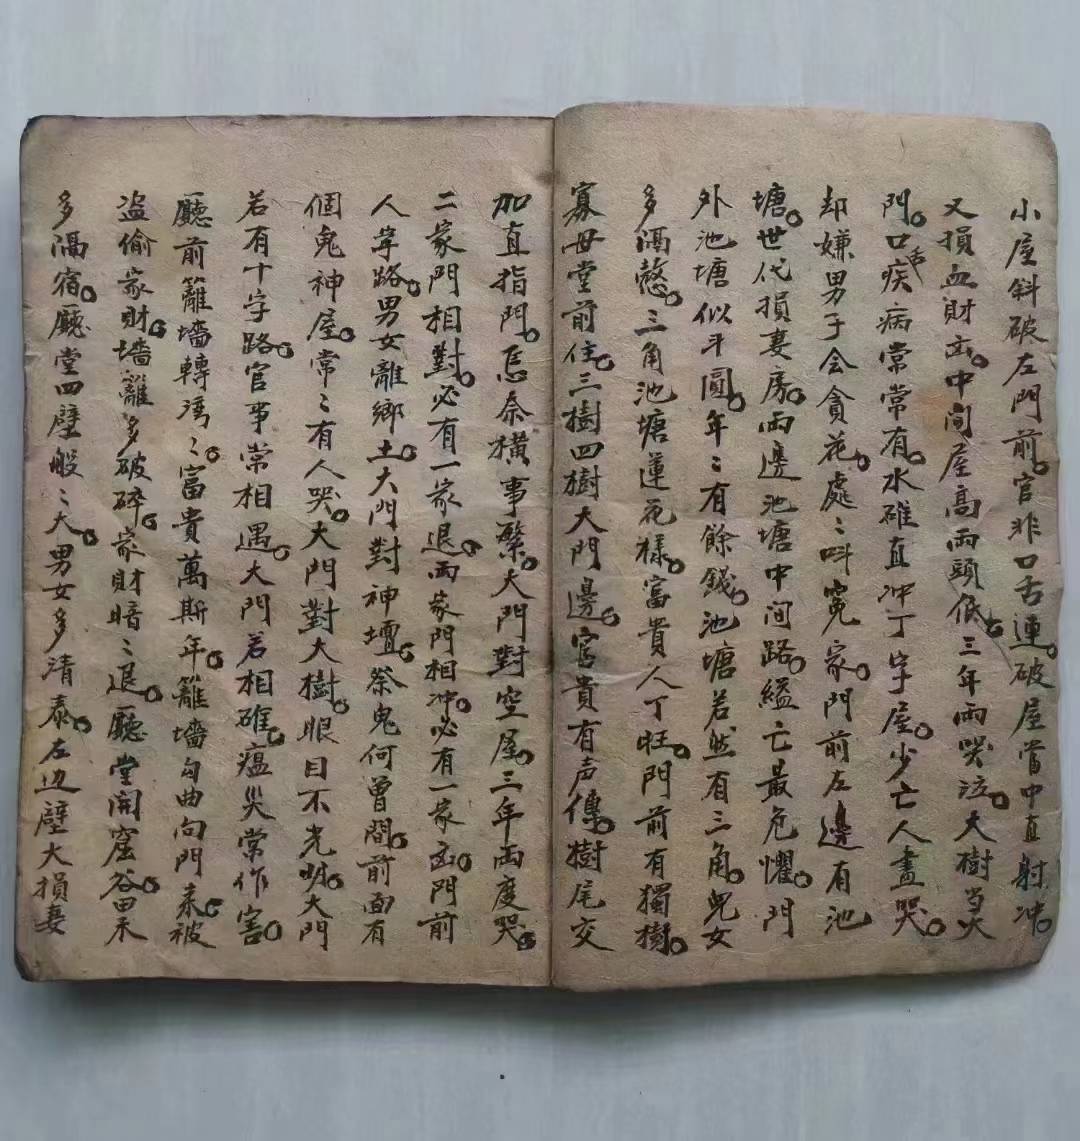 小屋斜破左門前。官非口舌連。破屋當中直射冲。
又損血財凶。中间屋高兩頭低。三年兩哭泣。大樹当大
門。口舌疾病常常有。水碓直冲丁字屋。少亡人盡哭。
却嫌男子会貪花。處〻叫寃家。門前左邊有池
塘。世代損妻房。兩邊池塘中间路。縊亡最危懼。門
外池塘似斗圓。年〻有餘錢。池塘若然有三角。兒女
多隔愁。三角池塘蓮花樣。富貴人丁旺。門前有獨樹。
寡母堂前住。三樹四樹大門邊。官貴有声傳。樹尾交
加直指門。忌奈横事繁。大門對空屋。三年兩度哭。
二家門相對。必有一家退。兩家門相冲。必有一家凶。門前
人字路。男女離鄉土。大門對神壇。祭鬼何曾閒。前面有
個鬼神屋。常〻有人哭。大門對大樹。眼目不光明。大門
若有十字路。官事常相遇。大門若相碓。瘟災常作害。
廳前籬墻轉湾〻。富貴萬斯年。籬墻勾曲向門来。被
盗偷家財。墻籬多破碎。家財暗〻退。廳堂開窟谷。田禾
多隔宿。廳堂四壁般〻大。男女多清泰。左边壁大損妻